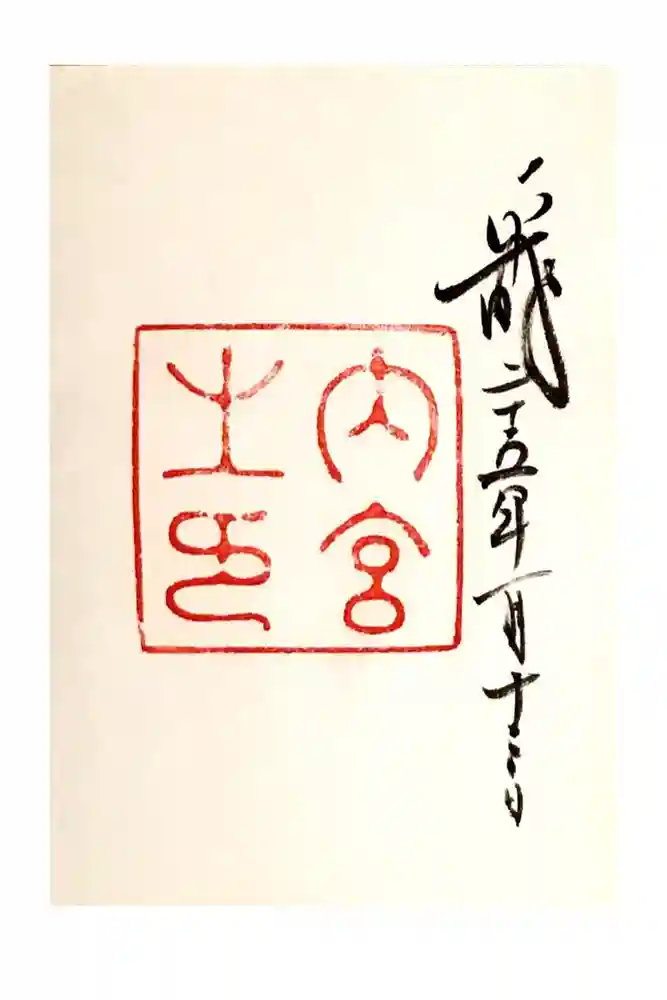 平成二十五年一月
内宮
之印